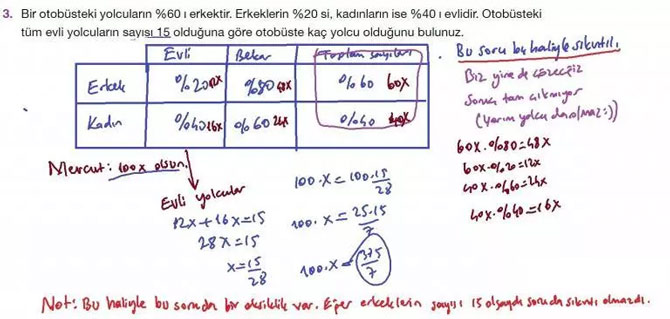 3. Bir otobüsteki yolcuların %60 ı erkektir. Erkeklerin %20 si, kadınların ise %40 ı evlidir. Otobüsteki
tüm evli yolcuların sayısı 15 olduğuna göre otobüste kaç yolcu olduğunu bulunuz.
Evli Bekar Toplam sayıları
Erkek %20 12x %80 48x %60 60x
Kadın %40 16x %60 24x %40 40x
Bu soru bu haliyle sıkıntılı
Biz yine de çözeceğiz
Sonuç tam çıkmıyor
(Yarım yolcu da olmaz :))
60x.%80=48x
60x.%20=12x
40x.%60=24x
40x.%40=16x
Mevcut: 100x olsun.
Evli yolcular
12x+16x=15
28x=15
x=15/28
100.x=100.15/28
100.x=25.15/7
100.x=375/7
Not: Bu haliyle bu soruda bir eksiklik var. Eğer erkeklerin sayısı 15 olsaydı soruda sıkıntı olmazdı.